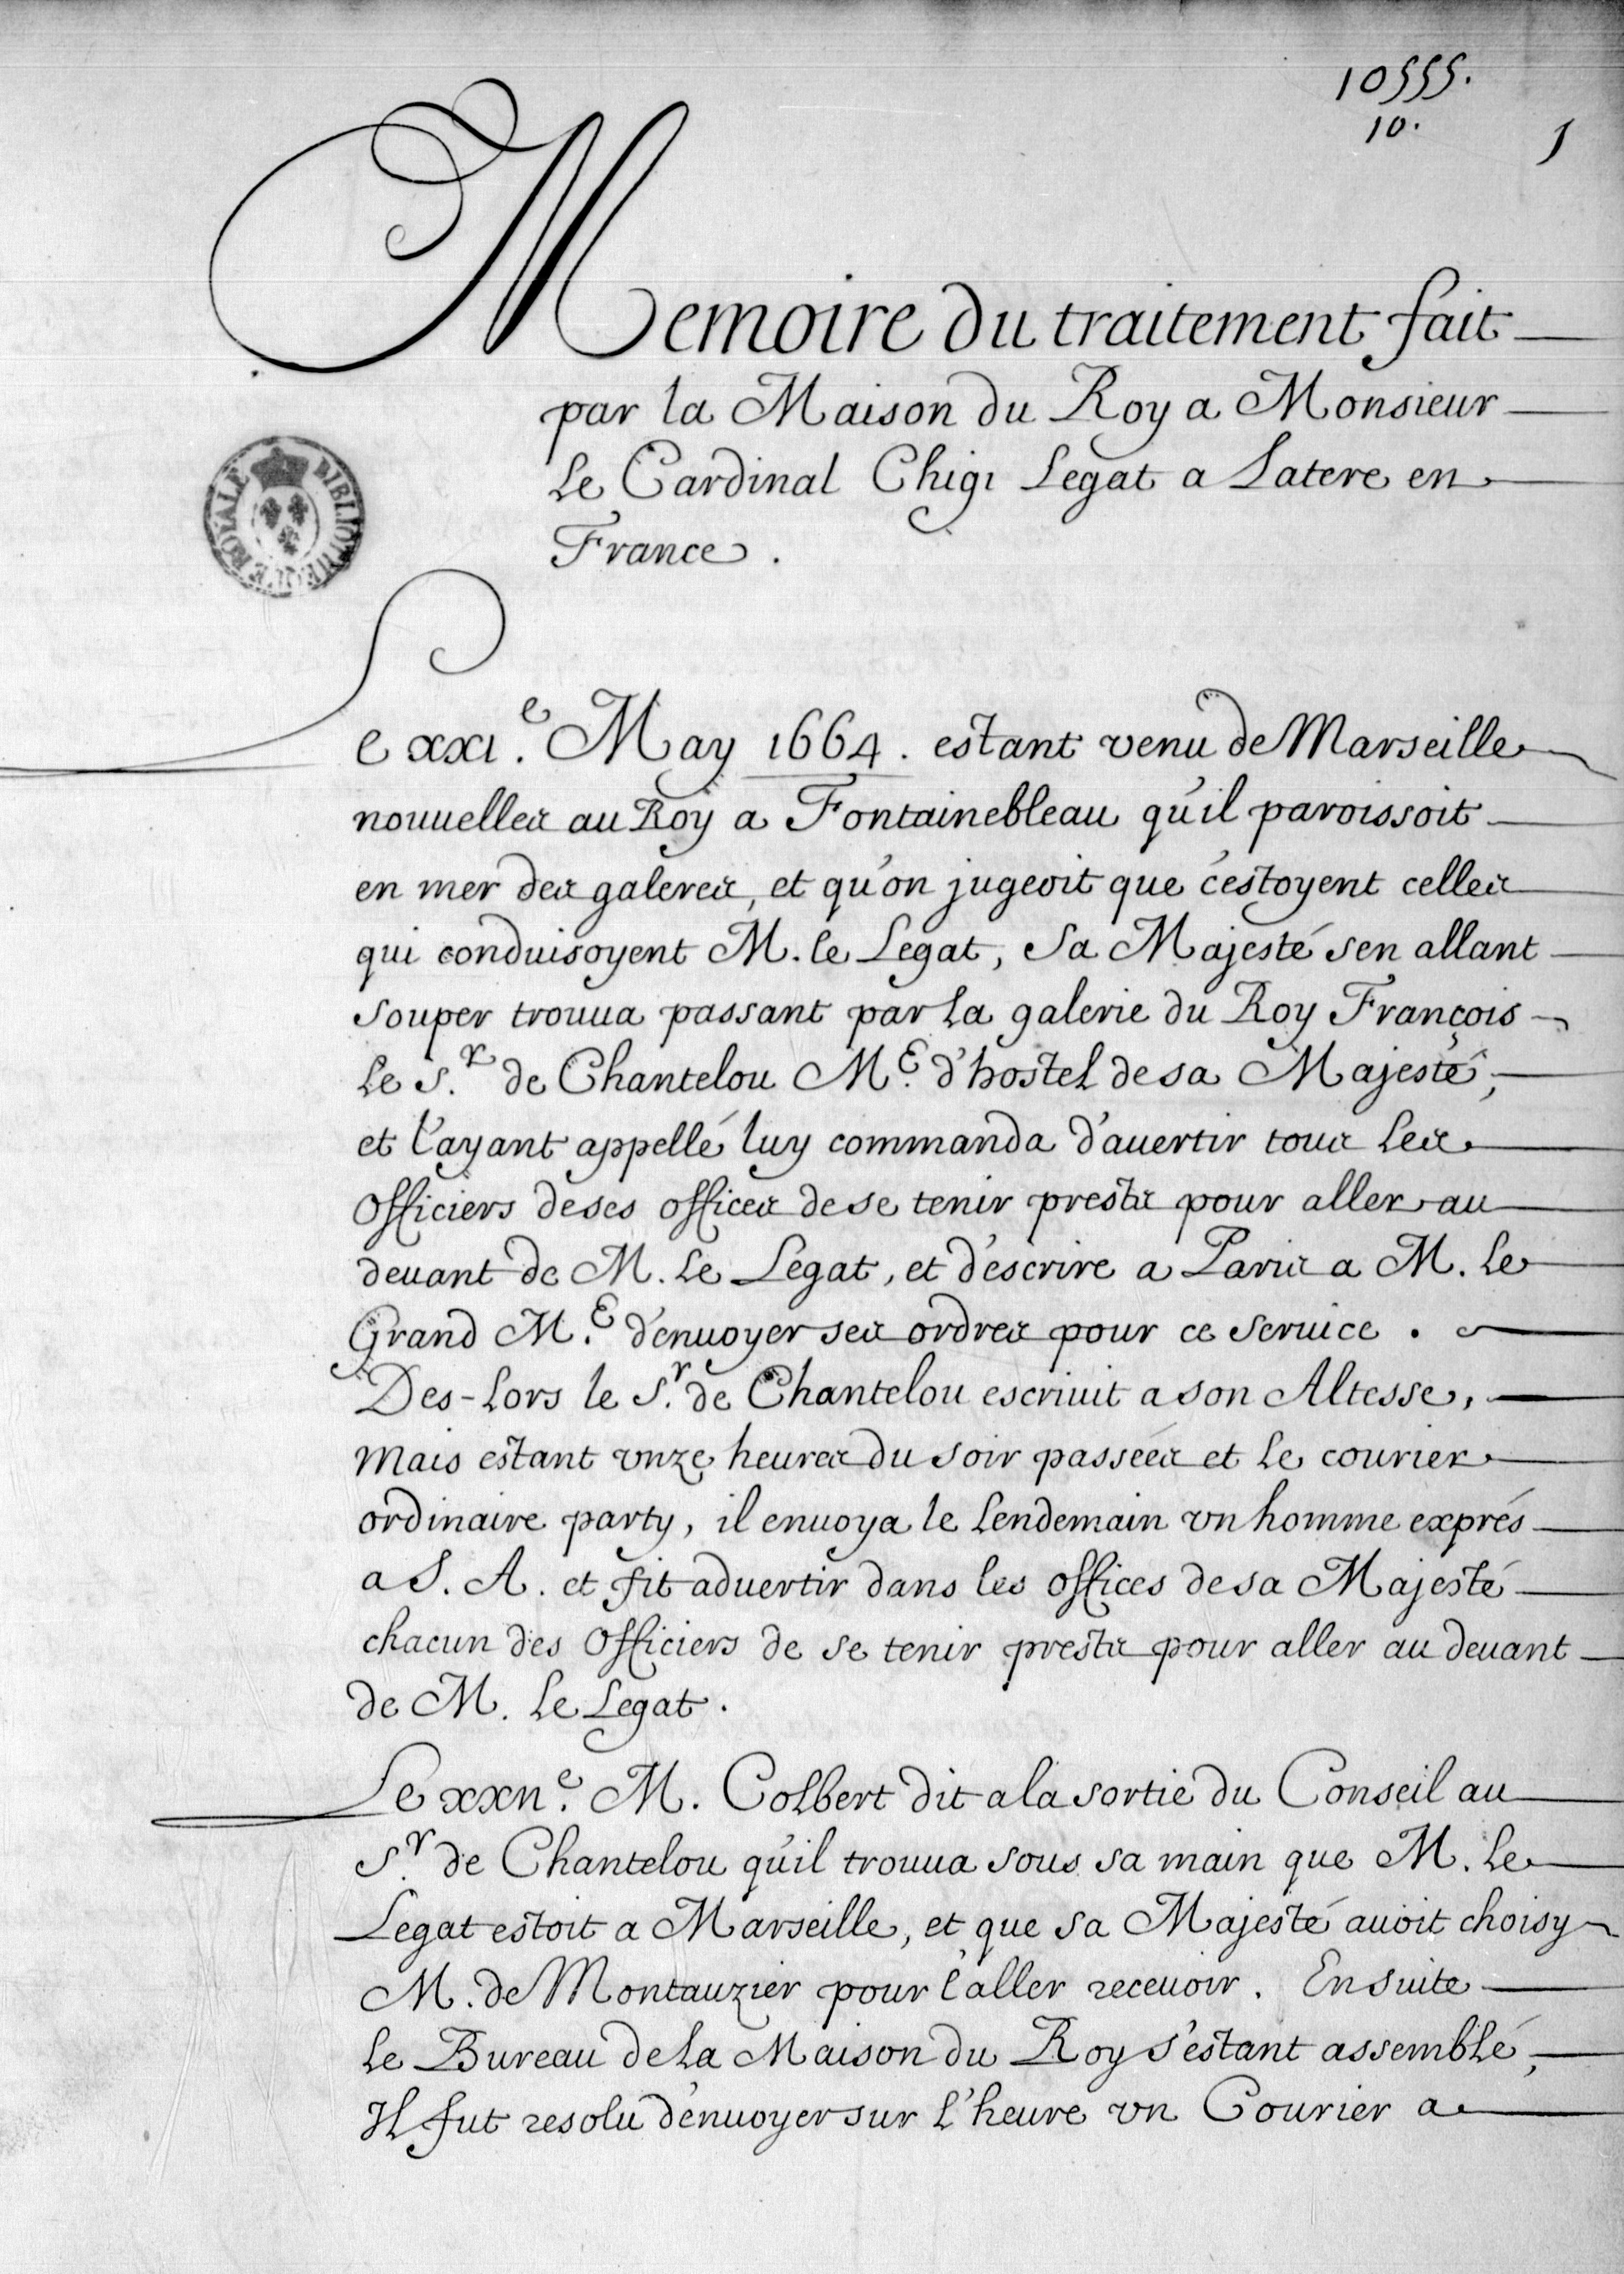 10555.
10.
1
Memoire du traitement fait
par la Maison du Roy a Monsieur
le Cardinal Chigi Legat a Latere en
France.
BIBLIOTHEQUE ROYALE
Le xxi.e May 1664. estant venu de Marseille
nouuelles au Roy a Fontainebleau qu'il paroissoit
en mer des galeres, et qu'on jugeoit que c'estoyent celles
qui conduisoyent M. le Legat, sa Majesté s'en allant
souper trouua passant par la galerie du Roy François
le S.r de Chantelou M.e d'hostel de sa Majesté,
et l'ayant appellé luy commanda d'auertir tous les
officiers de ses offices de se tenir prests pour aller au
deuant de M. le Legat, et d'escrire a Paris a M. le
Grand M.e d'enuoyer ses ordres pour ce seruice.
Des-lors le S.r de Chantelou escriuit a son Altesse,
mais estant vnze heures du soir passées et le courier
ordinaire party, il enuoya le lendemain vn homme exprés
a S. A. et fit aduertir dans les offices de sa Majesté
chacun des officiers de se tenir prests pour aller au deuant
de M. le Legat.
Le xxii.e M. Colbert dit a la sortie du Conseil au
S.r de Chantelou qu'il trouua sous sa main que M. le
Legat estoit a Marseille, et que sa Majesté auoit choisy
M. de Montauzier pour l'aller receuoir. Ensuite
le Bureau de la Maison du Roy s'estant assemblé,
Il fut resolu d'enuoyer sur l'heure vn Courier a